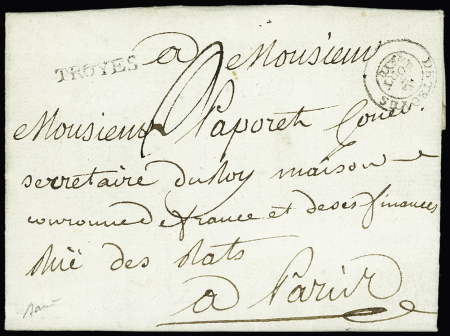 TROYES
a Monsieur
Monsieur Laporet Coner.
secretaire du Roy maison
couronne de france et de ses finances
Ruë des Rats
a Paris